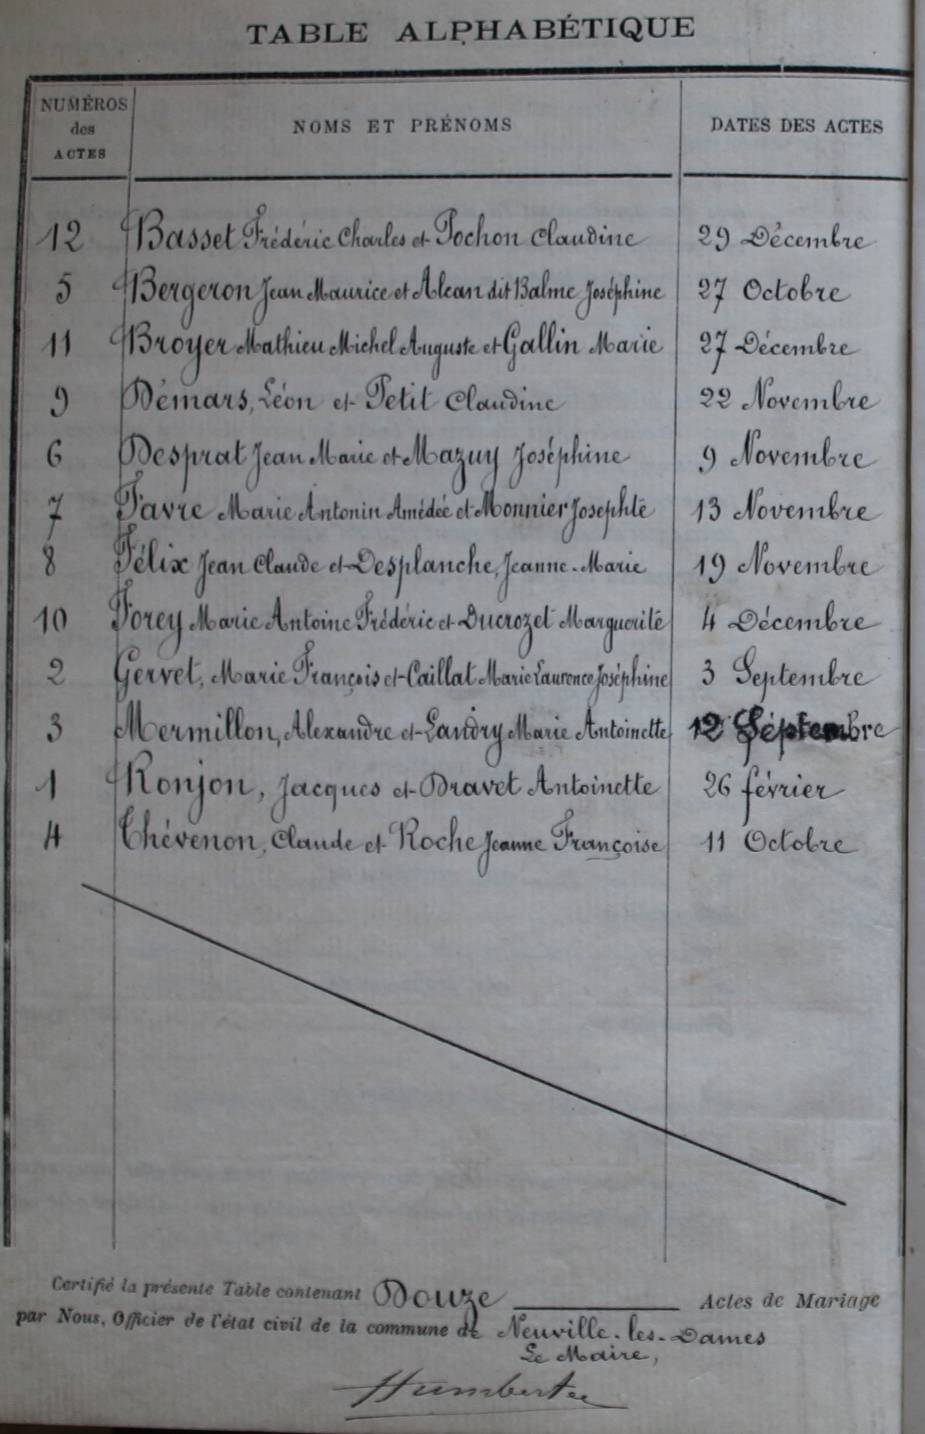 TABLE ALPHABÉTIQUE
NUMÉROS des ACTES NOMS ET PRÉNOMS DATES DES ACTES
12 Basset Frédéric Charles et Pochon Claudine 29 Décembre
5 Bergeron Jean Maurice et Alcan dit Balme Joséphine 27 Octobre
11 Broyer Mathieu Michel Auguste et Gallin Marie 27 Décembre
9 Démars, Léon et Petit Claudine 22 Novembre
6 Desprat Jean Marie et Mazuy Joséphine 9 Novembre
7 Favre Marie Antonin Amédée et Monnier Josephte 13 Novembre
8 Félix Jean Claude et Desplanche, Jeanne-Marie 19 Novembre
10 Forey Marie Antoine Frédéric et Ducrozet Marguerite 4 Décembre
2 Gervet, Marie François et Caillat Marie Laurence Joséphine 3 Septembre
3 Mermillon, Alexandre et Landry Marie Antoinette 12 Septembre
1 Ronjon, Jacques et Dravet Antoinette 26 février
4 Thévenon, Claude et Roche Jeanne Françoise 11 Octobre
Certifié la présente Table contenant Douze Actes de Mariage
par Nous, Officier de l'état civil de la commune de Neuville-les-Dames
Le Maire,